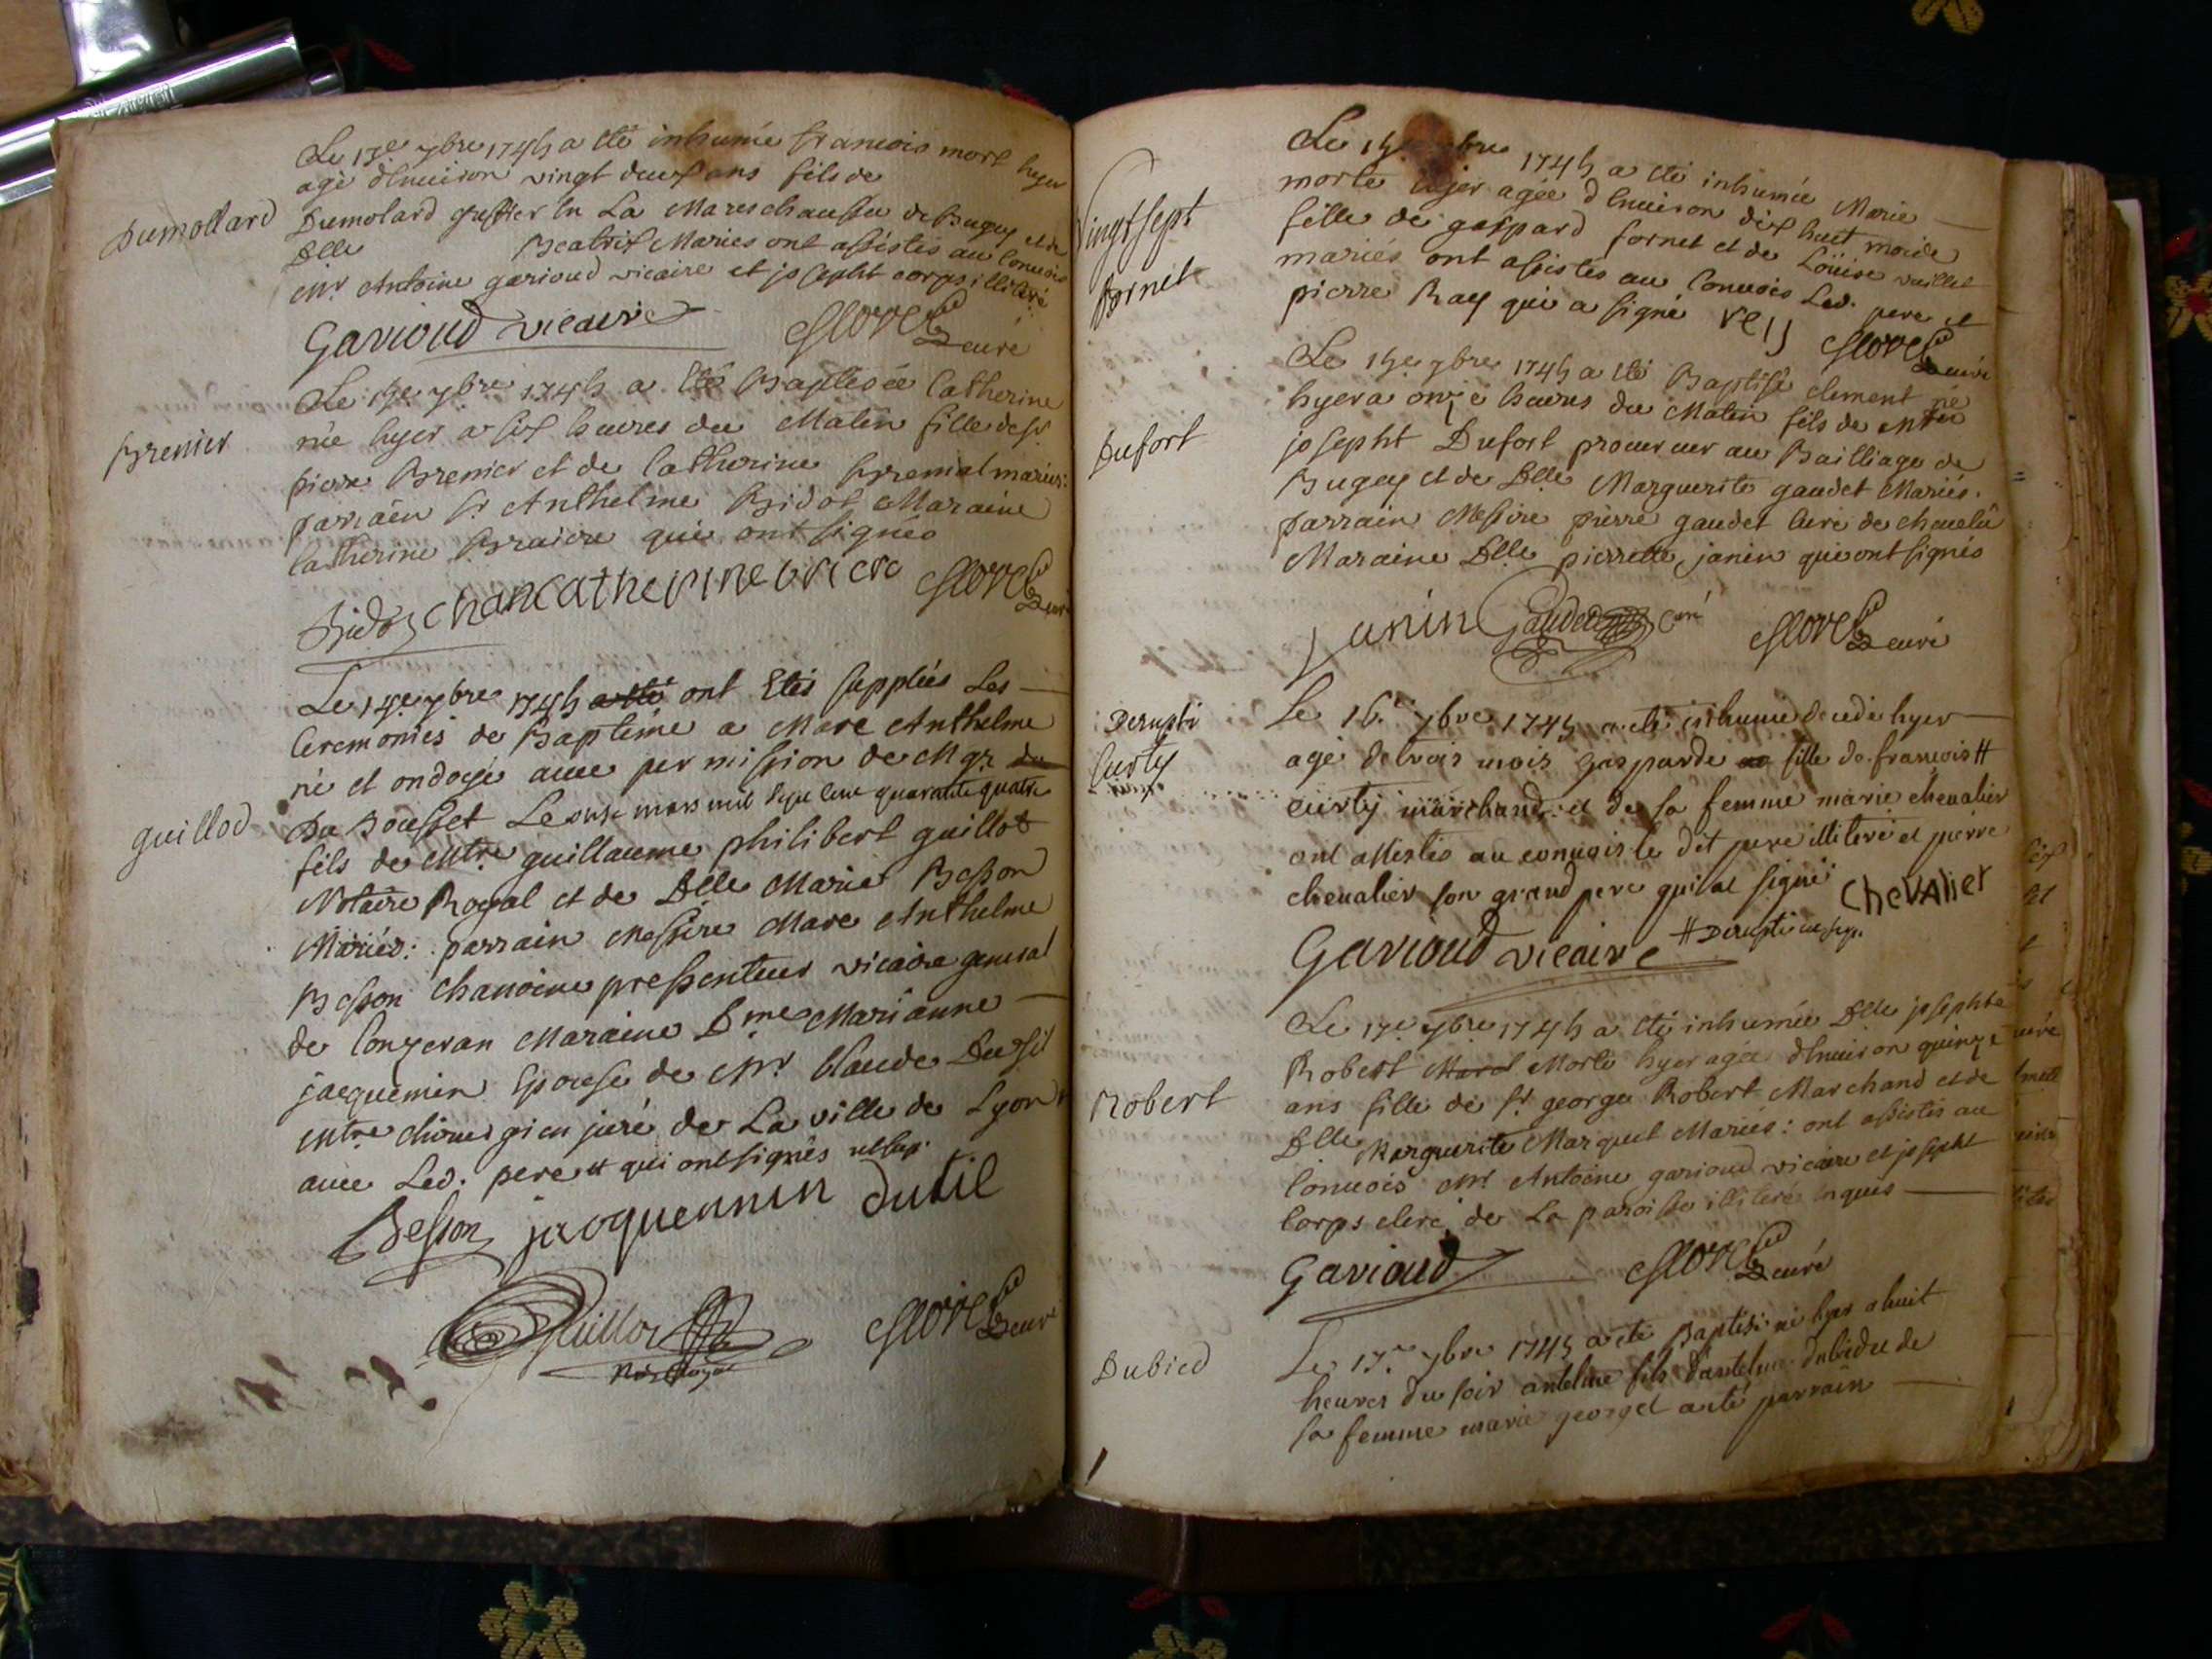 Dumollard
Le 13e 7bre 1745 a été inhumée francois mort hyer
agé d'Enuiron vingt deux ans fils de
Dumolard greffier En La Mareschaussée de Bugey et de
Dlle Beatrix Mariés ont assistés au Conuois
Mr Antoine garioud vicaire et josepht corps illiteré
Garioud vicaire
curé
Brenier
Le 14e 7bre 1745 a été Baptisée Catherine
née hyer a six heures du Matin fille de sr
pierre Brenier et de Catherine mariés:
parrain sr Anthelme Bidot Maraine
Catherine qui ont signés
catherine
curé
guillod
Le 14e 7bre 1745 a été ont Etés suppléés Les
Ceremonies de Baptême a Marc Anthelme
né et ondoyé auec permission de Mgr du
Du Dousset Le onze mars mil sept cent quarante quatre
fils de Mtre guillaume philibert guillot
Notaire Royal et de Dlle Marie Besson
Mariés: parrain Messire Marc Anthelme
Besson chanoine pressenteur vicaire general
de Maraine Dme Marianne
jacquemin Epouse de Mr Claude Dutil
Mtre chirurgien juré de La ville de Lyon
auec Led. pere et qui ont signés
Besson jacquemin dutil
Guillot
Not Royal
curé
Vingt sept
fornet
Le 7bre 1745 a été inhumée Marie
morte hyer agée d'Enuiron dix huit mois
fille de gaspard fornet et de Loüise vuillet
mariés ont assistés au Conuois Led. pere et
pierre Ray qui a signé rey
curé
Dufort
Le 15e 7bre 1745 a été Baptisé clement né
hyer a onze heures du Matin fils de Mtre
josepht Dufort procureur au Bailliage de
Bugey et de Dlle Marguerite gaudet Mariés.
parrain Messire pierre gaudet Curé de cheuelu
Maraine Dlle pierrette janin qui ont signés
janin Gaudet Curé
curé
Derupti
Curty
Le 16e 7bre 1745 a été inhumé decedé hyer
agé de trois mois gasparde fille de françois #
curty marchand et de sa femme marie cheualier
ont assistés au conuois le dit pere illiteré et pierre
cheualier son grand pere qui a signé Chevalier
Garioud vicaire # Derupti
Robert
Le 17e 7bre 1745 a été inhumée Dlle josephte
Robert Morte hyer agée d'Enuiron quinze
ans fille de sr george Robert Marchand et de
Dlle Marguerite Marquet Mariés: ont assistés au
Conuois Mr Antoine garioud vicaire et josepht
Corps clerc de La paroisse illiteré Enquis
Garioud
curé
Dubied
Le 17e 7bre 1745 a été Baptisé né hyer a huit
heures du soir antelme fils d'antelme dubied et de
sa femme marie georget a été parrain